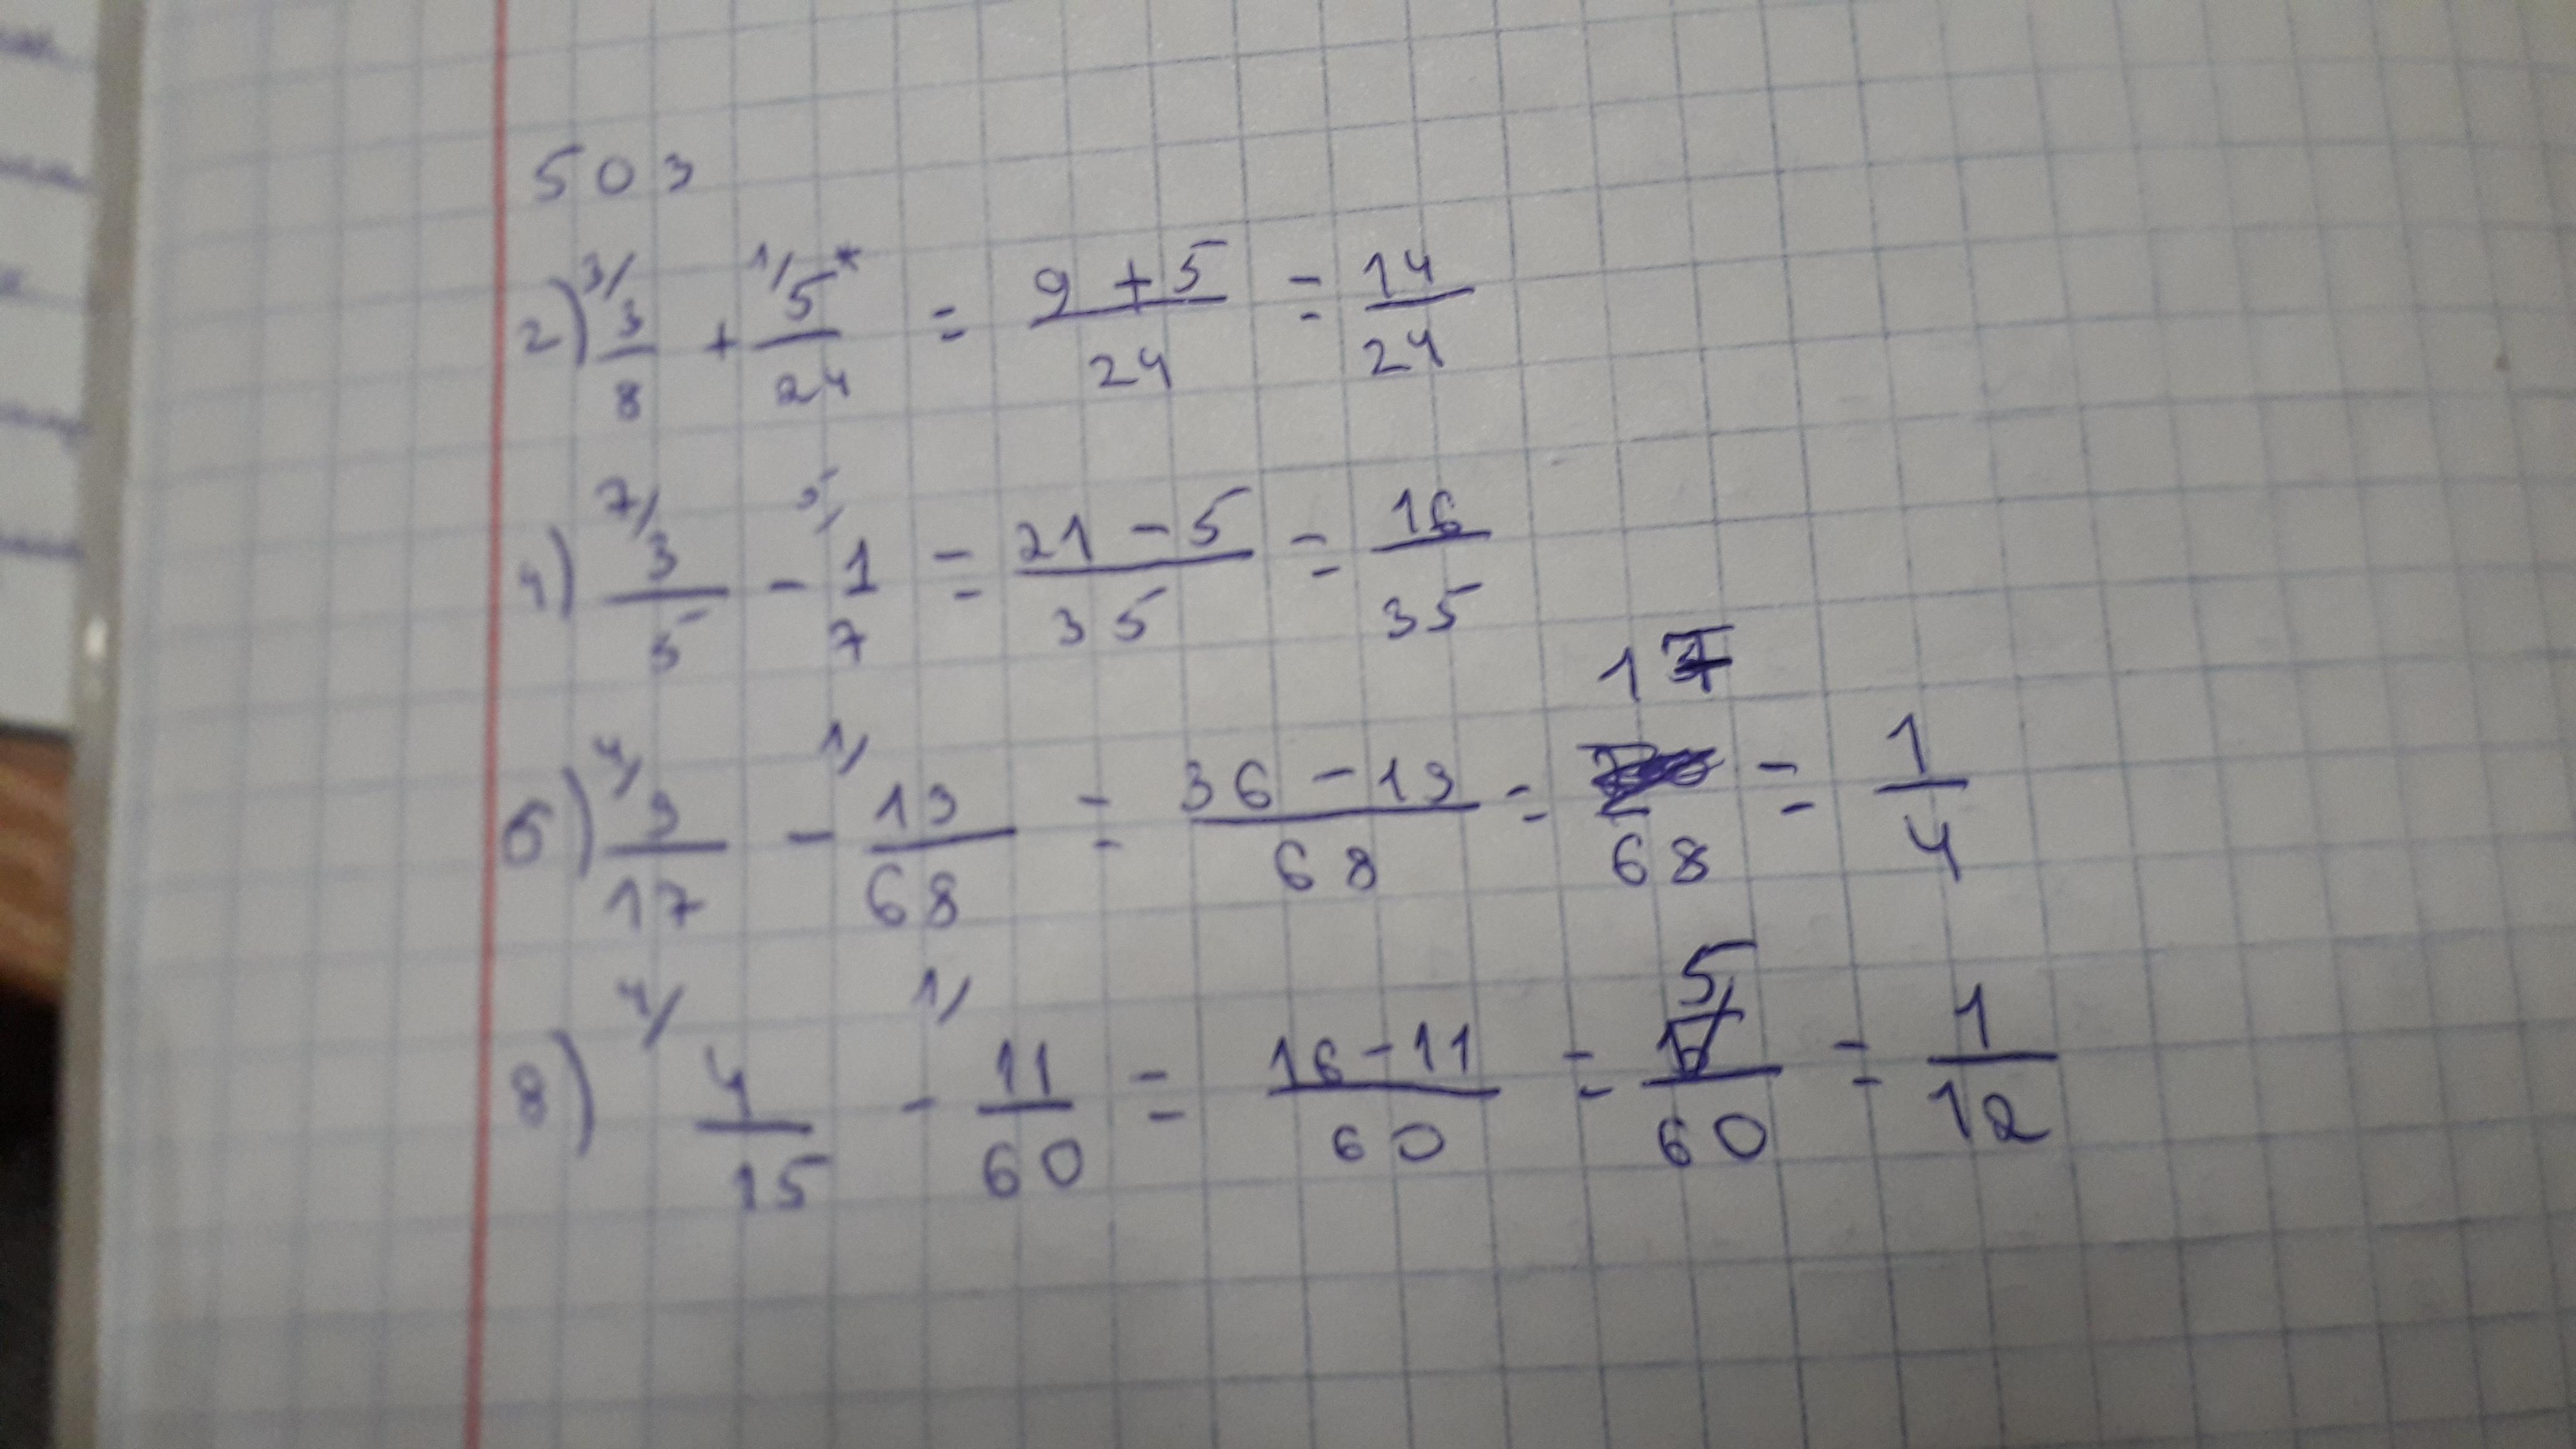 503
2) 3/ 3/8 + 1/ 5/24 = 9+5/24 = 14/24
4) 7/ 3/5 - 5/ 1/7 = 21-5/35 = 16/35
6) 4/ 9/17 - 1/ 19/68 = 36-19/68 = 17/68 = 1/4
8) 4/ 4/15 - 1/ 11/60 = 16-11/60 = 5/60 = 1/12